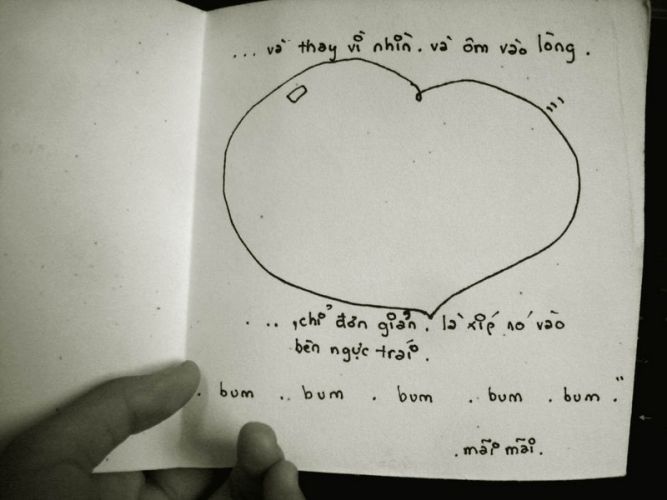 ... và thay vì nhìn. và ôm vào lòng.
... , chỉ đơn giản. là xiếp nó vào
bên ngực trái.
. bum .. bum . bum . bum . bum ."
. mãi mãi.